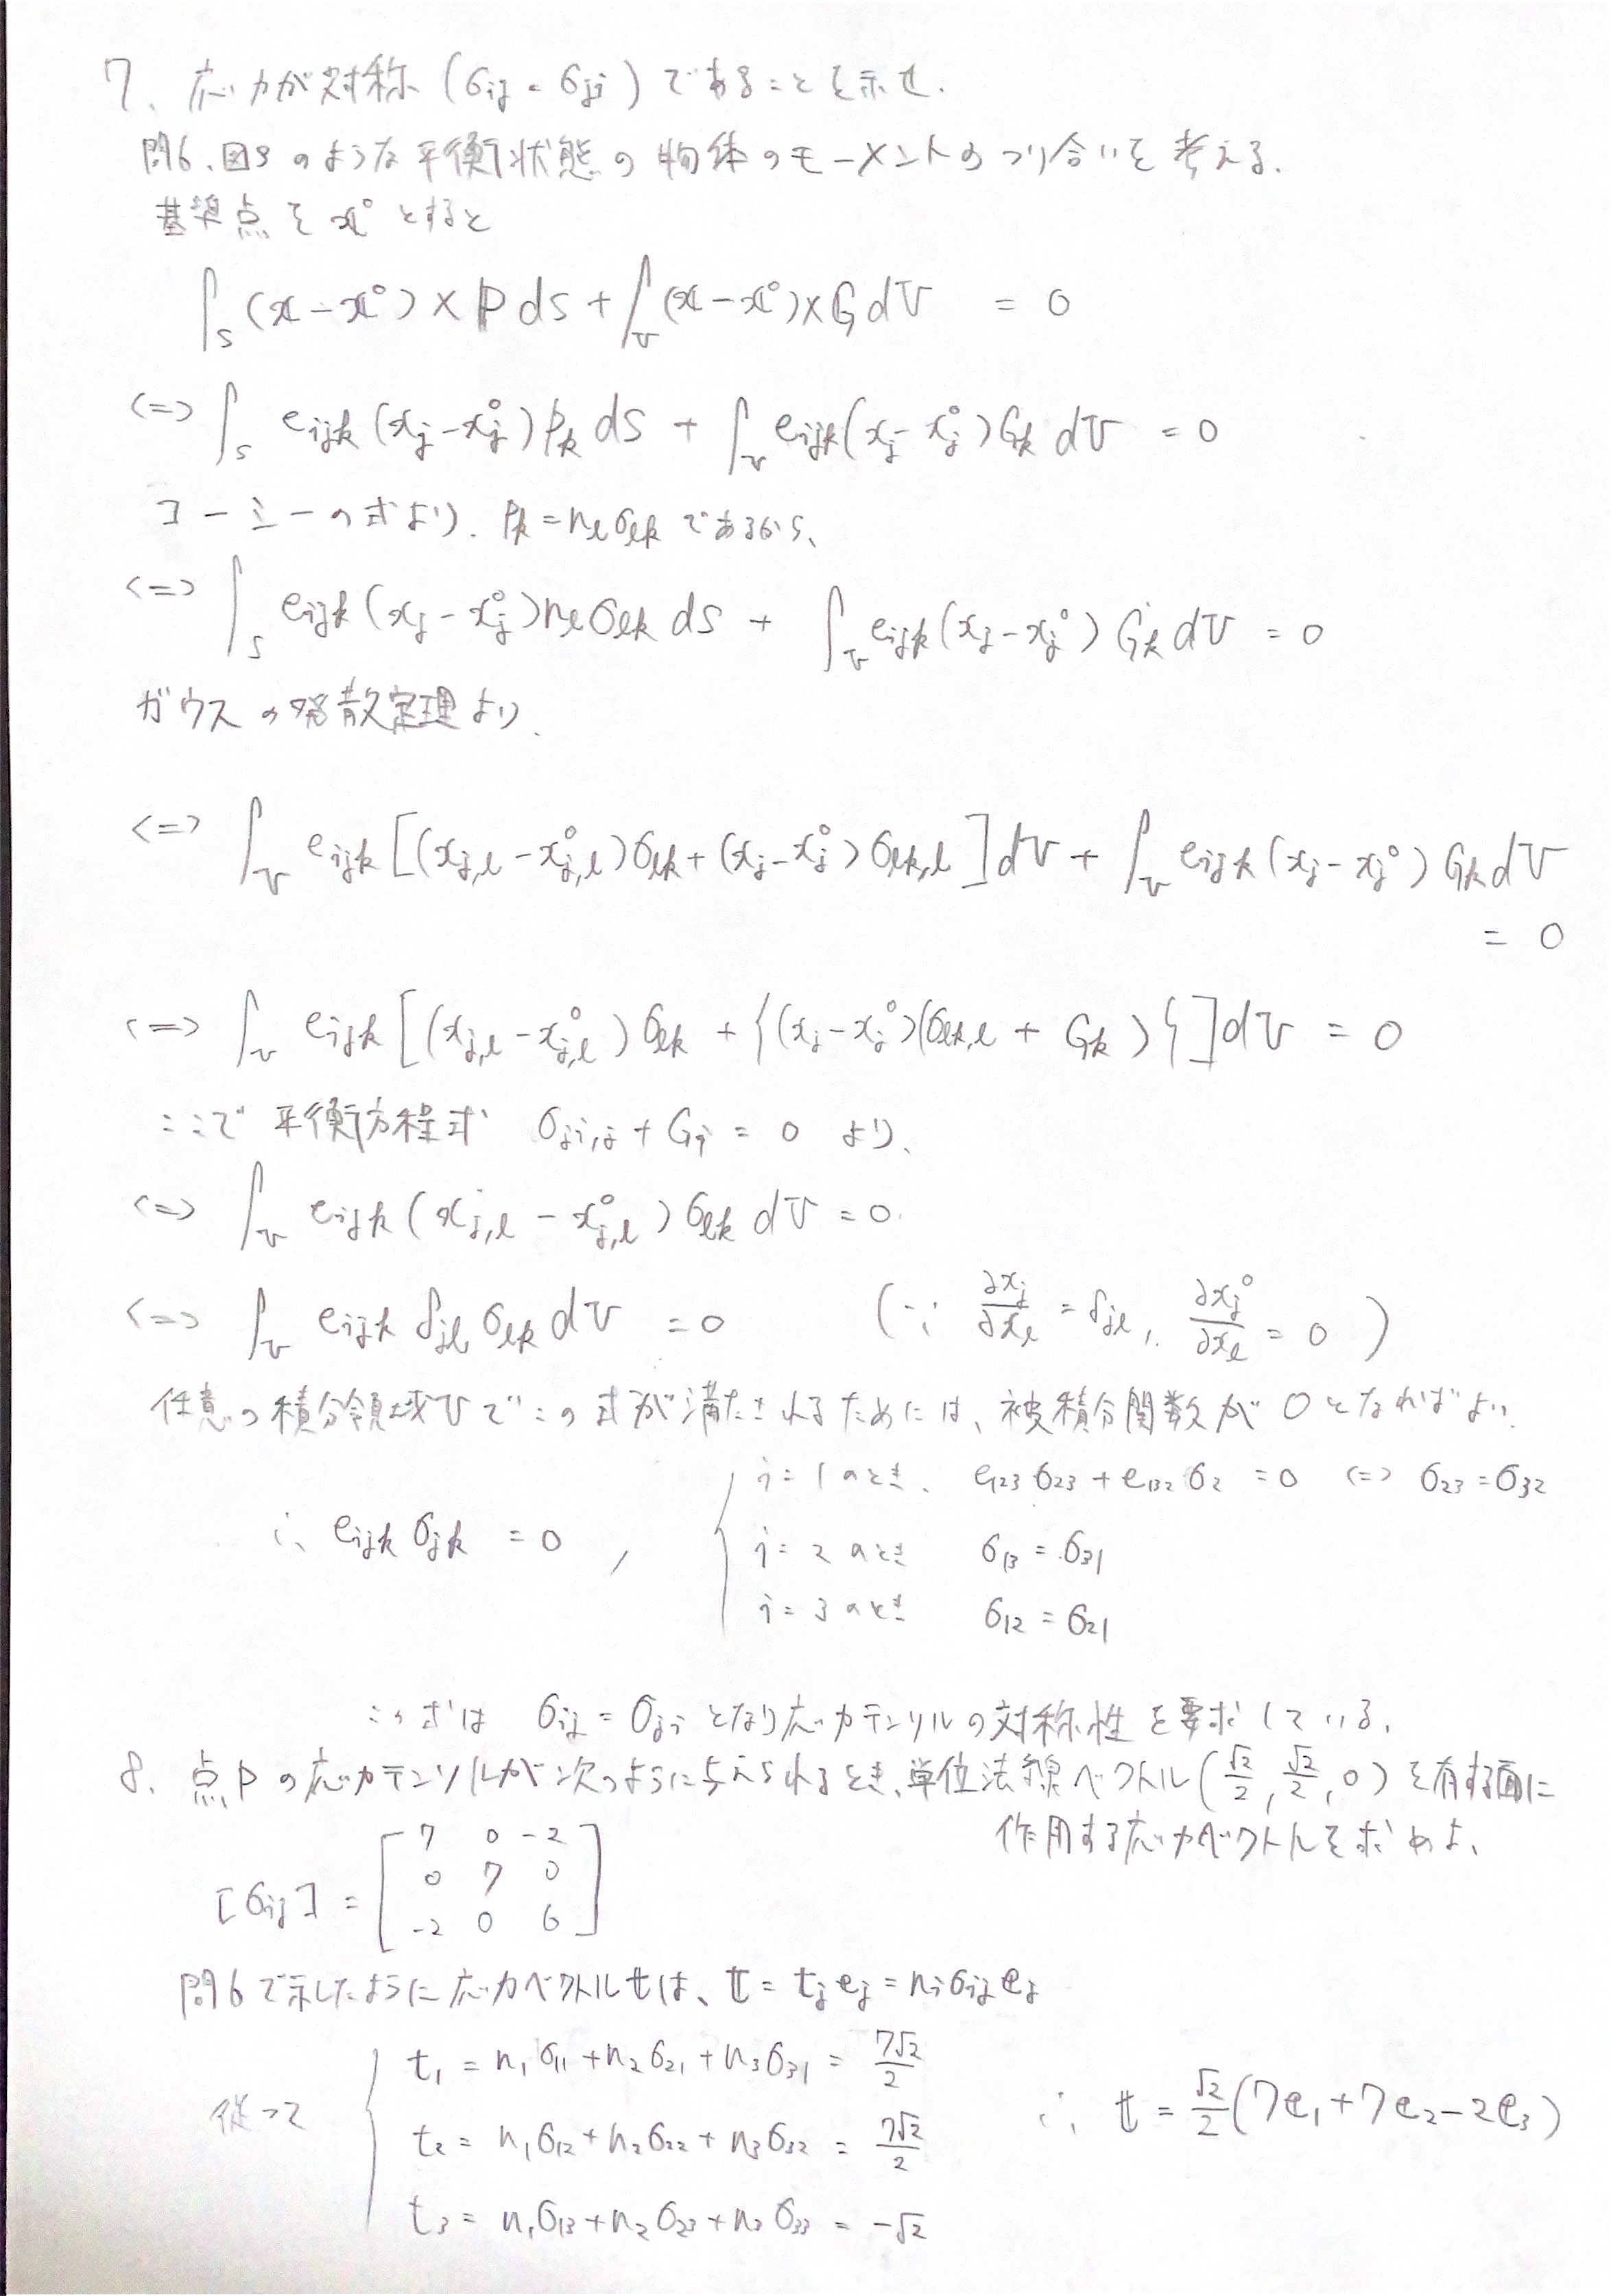 7. 応力が対称(σij = σji)であることを示せ.
問6. 図3のような平衡状態の物体のモーメントのつり合いを考える.
基準点をx°とすると
∫s (x-x°)×p ds + ∫v (x-x°)×G dV = 0
<=> ∫s eijk (xj-xj°) pk ds + ∫v eijk (xj-xj°) Gk dV = 0
コーシーの式より. pk = nl σlk であるから、
<=> ∫s eijk (xj-xj°) nl σlk ds + ∫v eijk (xj-xj°) Gk dV = 0
ガウスの発散定理より、
<=> ∫v eijk [(xj,l - xj,l°) σlk + (xj-xj°) σlk,l] dV + ∫v eijk (xj-xj°) Gk dV
= 0
<=> ∫v eijk [(xj,l - xj,l°) σlk + {(xj-xj°)(σlk,l + Gk)}] dV = 0
ここで 平衡方程式 σji,j + Gi = 0 より、
<=> ∫v eijk (xj,l - xj,l°) σlk dV = 0.
<=> ∫v eijk δjl σlk dV = 0 (∵ ∂xj/∂xl = δjl, ∂xj°/∂xl = 0)
任意の積分領域Vでこの式が満たされるためには、被積分関数が0となればよい.
∴ eijk σjk = 0 ,
i=1のとき、 e123 σ23 + e132 σ2 = 0 <=> σ23 = σ32
i=2のとき σ13 = σ31
i=3のとき σ12 = σ21
この式は σij = σji となり応力テンソルの対称性を要求している.
8. 点Pの応力テンソルが次のように与えられるとき、単位法線ベクトル(√2/2, √2/2, 0)を有する面に
作用する応力ベクトルを求めよ、
[σij] = [7 0 -2
0 7 0
-2 0 6]
問6で示したように応力ベクトルtは、t = tj ej = ni σij ej
従って
t1 = n1σ11 + n2σ21 + n3σ31 = 7√2/2
t2 = n1σ12 + n2σ22 + n3σ32 = 7√2/2
t3 = n1σ13 + n2σ23 + n3σ33 = -√2
∴ t = √2/2 (7e1 + 7e2 - 2e3)